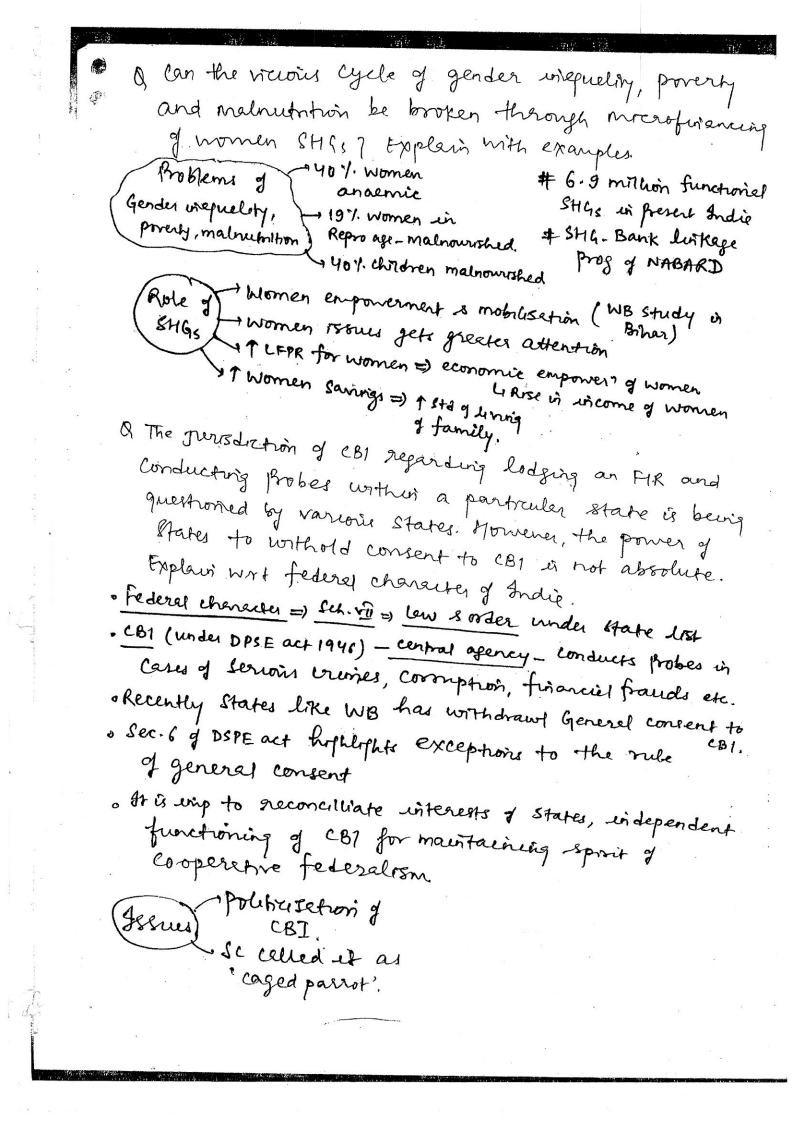 Q Can the vicious cycle of gender inequality, poverty
and malnutrition be broken through microfinancing
of women SHGs? Explain with examples.
Problems of
Gender inequality,
poverty, malnutrition
→ 40% women
anaemic
→ 19% women in
Repro age - malnourished.
→ 40% children malnourished
# 6.9 million functional
SHGs in present India
# SHG-Bank linkage
prog of NABARD
Role of
SHGs
→ Women empowerment & mobilisation (WB study in
Bihar)
→ Women issues gets greater attention
→ ↑ LFPR for women ⇒ economic empower" of women
↳ Rise in income of women
→ ↑ Women savings ⇒ ↑ std of living
of family.
Q The jurisdiction of CBI regarding lodging an FIR and
conducting probes within a particular state is being
questioned by various states. However, the power of
states to withold consent to CBI is not absolute.
Explain wrt federal character of India.
• Federal character ⇒ Sch. VII ⇒ Law & order under state list
• CBI (under DPSE act 1946) – central agency – conducts probes in
cases of serious crimes, corruption, financial frauds etc.
• Recently states like WB has withdrawl General consent to
CBI.
• Sec. 6 of DSPE act highlights exceptions to the rule
of general consent
• It is imp to reconciliate interests of states, independent
functioning of CBI for maintaining spirit of
co-operative federalism
Issues
→ Politicisation of
CBI.
→ SC called it as
'caged parrot'.